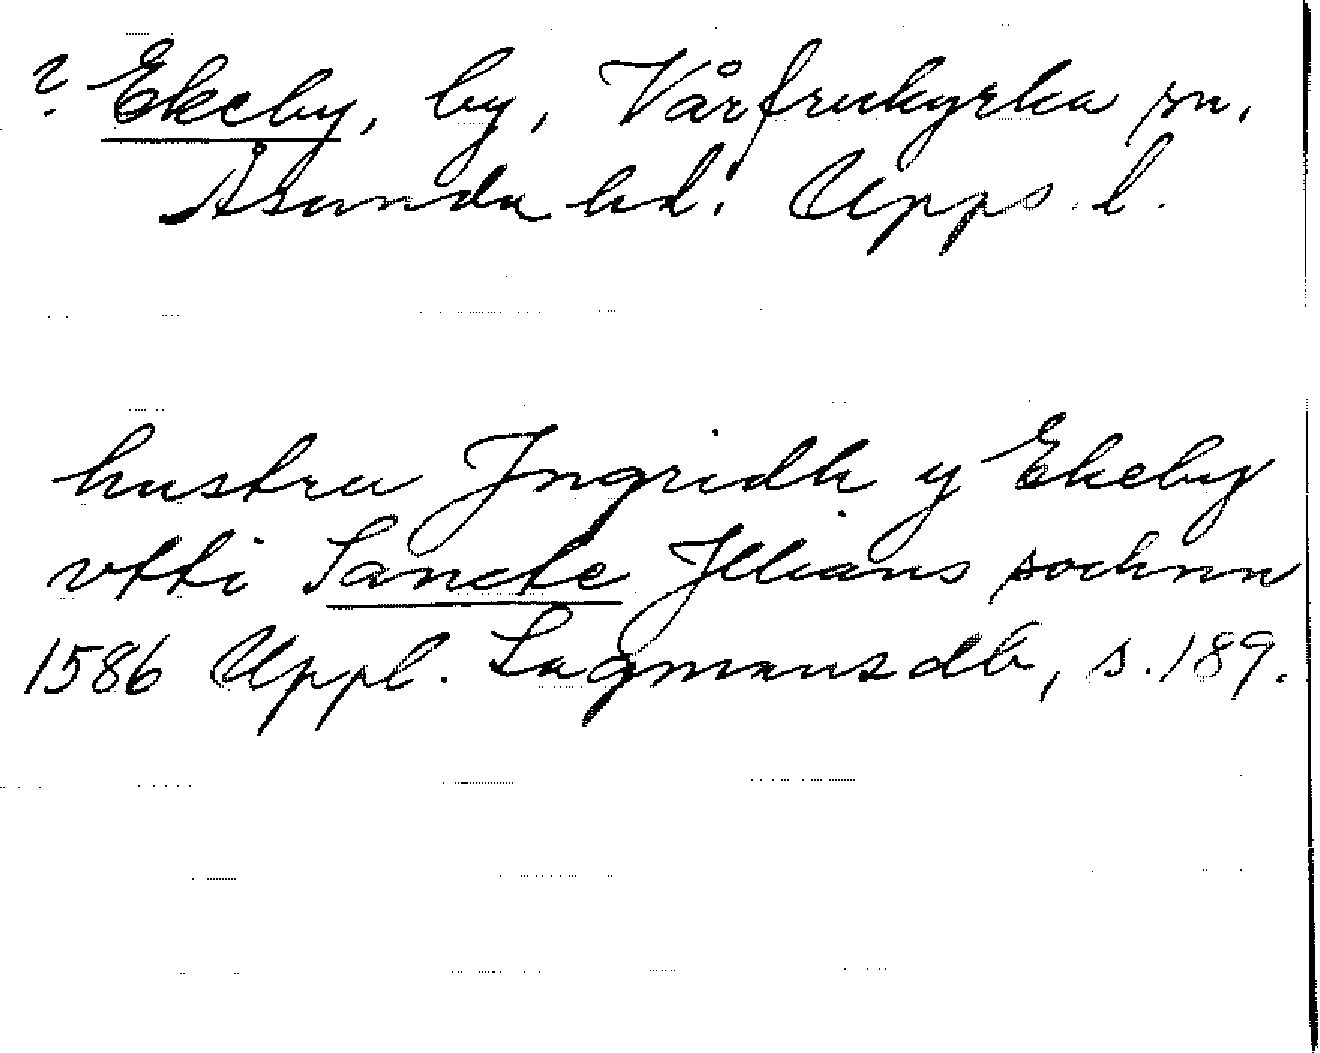 ? Ekeby, by, Vårfrukyrka sn,
Åsunda hd. Upps. l.
hustru Jngridh y Ekeby
vtti Sancte Jllians sochnn
1586 Uppl. Lagmansdb, s. 189.